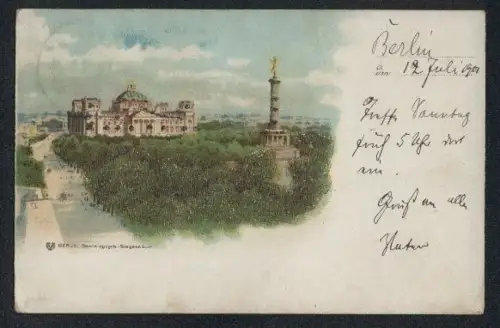 Berlin
den 12 Juli 1901
Treffe Sonntag
früh 5 Uhr dort
ein.
Gruß an alle
Vater
BERLIN. Reichstagsgeb. Siegessäule